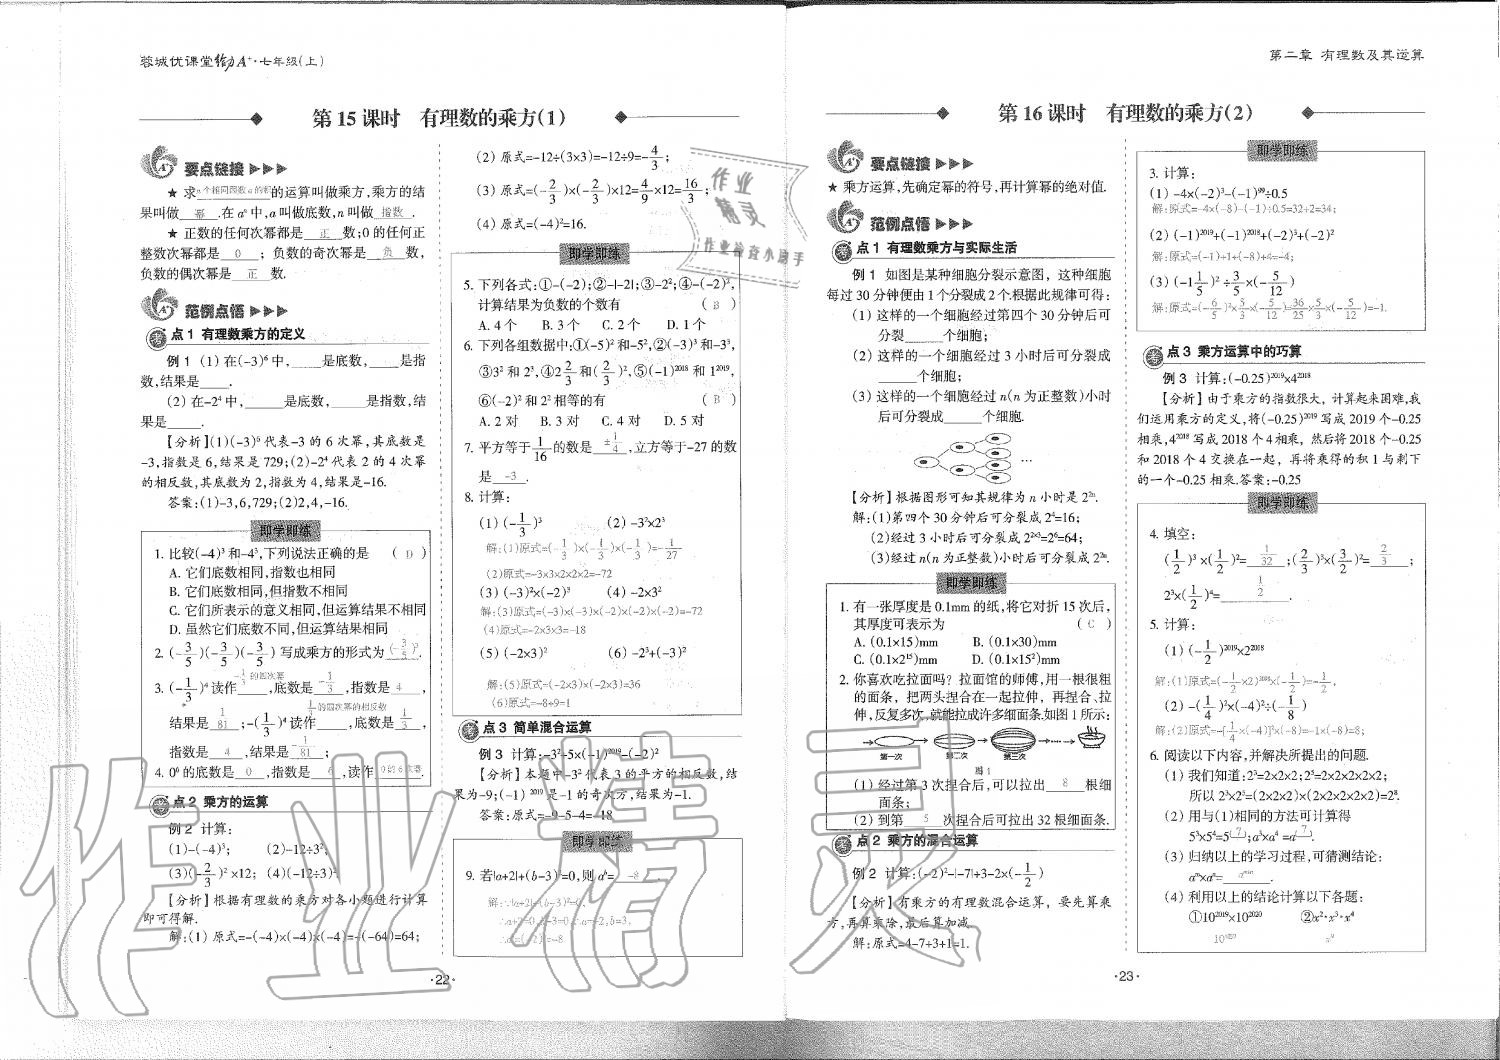 蓉城优课堂给力A⁺·七年级(上)
第15课时 有理数的乘方(1)
要点链接
★ 求n个相同因数a的积的运算叫做乘方,乘方的结
果叫做 幂 .在aⁿ中,a叫做底数,n叫做 指数 .
★ 正数的任何次幂都是 正 数;0的任何正
整数次幂都是 0 ; 负数的奇次幂是 负 数,
负数的偶次幂是 正 数.
范例点悟
考点1 有理数乘方的定义
例1 (1)在(-3)⁶中,____是底数,____是指
数,结果是____.
(2)在-2⁴中,____是底数,____是指数,结
果是____.
【分析】(1)(-3)⁶代表-3的6次幂,其底数是
-3,指数是6,结果是729;(2)-2⁴代表2的4次幂
的相反数,其底数为2,指数为4,结果是-16.
答案:(1)-3,6,729;(2)2,4,-16.
即学即练
1. 比较(-4)³和-4³,下列说法正确的是 ( D )
A. 它们底数相同,指数也相同
B. 它们底数相同,但指数不相同
C. 它们所表示的意义相同,但运算结果不相同
D. 虽然它们底数不同,但运算结果相同
2. (-3/5)(-3/5)(-3/5)写成乘方的形式为 (-3/5)³ .
3. (-1/3)⁴读作 -1/3的四次幂 ,底数是 -1/3 ,指数是 4 ,
结果是 1/81 ;-(1/3)⁴读作 1/3的四次幂的相反数 ,底数是 1/3 ,
指数是 4 ,结果是 -1/81 ;
4. 0⁶的底数是 0 ,指数是 6 ,读作 0的6次幂 .
考点2 乘方的运算
例2 计算:
(1)-(-4)³; (2)-12÷3²;
(3)(-2/3)²×12; (4)(-12÷3)².
【分析】根据有理数的乘方对各小题进行计算
即可得解.
解:(1)原式=-(-4)×(-4)×(-4)=-(-64)=64;
(2)原式=-12÷(3×3)=-12÷9=-4/3;
(3)原式=(-2/3)×(-2/3)×12=4/9×12=16/3;
(4)原式=(-4)²=16.
即学即练
5. 下列各式:①-(-2);②-|-2|;③-2²;④-(-2)²,
计算结果为负数的个数有 ( B )
A. 4个 B. 3个 C. 2个 D. 1个
6. 下列各组数据中:①(-5)²和-5²,②(-3)³和-3³,
③3²和2³,④2 2/3和(2/3)²,⑤(-1)²⁰¹⁸和1²⁰¹⁹,
⑥(-2)²和2²相等的有 ( B )
A. 2对 B. 3对 C. 4对 D. 5对
7. 平方等于1/16的数是 ±1/4 ,立方等于-27的数
是 -3 .
8. 计算:
(1)(-1/3)³ (2)-3²×2³
解:(1)原式=(-1/3)×(-1/3)×(-1/3)=-1/27
(2)原式=-3×3×2×2×2=-72
(3)(-3)²×(-2)³ (4)-2×3²
解:(3)原式=(-3)×(-3)×(-2)×(-2)×(-2)=-72
(4)原式=-2×3×3=-18
(5)(-2×3)² (6)-2³+(-3)²
解:(5)原式=(-2×3)×(-2×3)=36
(6)原式=-8+9=1
考点3 简单混合运算
例3 计算:-3²-5×(-1)²⁰¹⁹-(-2)²
【分析】本题中-3²代表3的平方的相反数,结
果为-9;(-1)²⁰¹⁹是-1的奇次方,结果为-1.
答案:原式=-9-5-4=-18
即学即练
9. 若|a+2|+(b-3)²=0,则aᵇ= -8 .
解:∵|a+2|+(b-3)²=0,
∴a+2=0,b-3=0∴a=-2,b=3,
∴aᵇ=(-2)³=-8
·22·
第二章 有理数及其运算
第16课时 有理数的乘方(2)
要点链接
★ 乘方运算,先确定幂的符号,再计算幂的绝对值.
范例点悟
考点1 有理数乘方与实际生活
例1 如图是某种细胞分裂示意图, 这种细胞
每过30分钟便由1个分裂成2个.根据此规律可得:
(1)这样的一个细胞经过第四个30分钟后可
分裂____个细胞;
(2)这样的一个细胞经过3小时后可分裂成
____个细胞;
(3)这样的一个细胞经过n(n为正整数)小时
后可分裂成____个细胞.
…
【分析】根据图形可知其规律为n小时是2²ⁿ.
解:(1)第四个30分钟后可分裂成2⁴=16;
(2)经过3小时后可分裂成2²ˣ³=2⁶=64;
(3)经过n(n为正整数)小时后可分裂成2²ⁿ.
即学即练
1. 有一张厚度是0.1mm的纸,将它对折15次后,
其厚度可表示为 ( C )
A. (0.1×15)mm B. (0.1×30)mm
C. (0.1×2¹⁵)mm D. (0.1×15²)mm
2. 你喜欢吃拉面吗? 拉面馆的师傅,用一根很粗
的面条, 把两头捏合在一起拉伸, 再捏合、拉
伸,反复多次,就能拉成许多细面条.如图1所示:
第一次 第二次 第三次
图1
(1)经过第3次捏合后,可以拉出 8 根细
面条;
(2)到第 5 次捏合后可拉出32根细面条.
考点2 乘方的混合运算
例2 计算:(-2)²-|-7|+3-2×(-1/2)
【分析】有乘方的有理数混合运算, 要先算乘
方,再算乘除,最后算加减.
解:原式=4-7+3+1=1.
即学即练
3. 计算:
(1)-4×(-2)³-(-1)⁹⁹÷0.5
解:原式=-4×(-8)-(-1)÷0.5=32+2=34;
(2)(-1)²⁰¹⁹+(-1)²⁰¹⁸+(-2)³+(-2)²
解:原式=(-1)+1+(-8)+4=-4;
(3)(-1 1/5)²÷3/5×(-5/12)
解:原式=(-6/5)²×5/3×(-5/12)=36/25×5/3×(-5/12)=-1.
考点3 乘方运算中的巧算
例3 计算:(-0.25)²⁰¹⁹×4²⁰¹⁸
【分析】由于乘方的指数很大, 计算起来困难,我
们运用乘方的定义,将(-0.25)²⁰¹⁹写成2019个-0.25
相乘,4²⁰¹⁸写成2018个4相乘, 然后将2018个-0.25
和2018个4交换在一起, 再将乘得的积1与剩下
的一个-0.25相乘.答案:-0.25
即学即练
4. 填空:
(1/2)³×(1/2)²= 1/32 ;(2/3)³×(3/2)²= 2/3 ;
2³×(1/2)⁴= 1/2 .
5. 计算:
(1)(-1/2)²⁰¹⁹×2²⁰¹⁸
解:(1)原式=(-1/2×2)²⁰¹⁸×(-1/2)=-1/2,
(2)-(1/4)²×(-4)²÷(-1/8)
解:(2)原式=-[1/4×(-4)]²×(-8)=-1×(-8)=8;
6. 阅读以下内容,并解决所提出的问题.
(1)我们知道:2³=2×2×2;2⁵=2×2×2×2×2;
所以2³×2⁵=(2×2×2)×(2×2×2×2×2)=2⁸.
(2)用与(1)相同的方法可计算得
5³×5⁴=5( 7 );a³×a⁴=a( 7 ).
(3)归纳以上的学习过程,可猜测结论:
aᵐ×aⁿ= aᵐ⁺ⁿ .
(4)利用以上的结论计算以下各题:
①10²⁰¹⁹×10²⁰²⁰ ②x²·x³·x⁴
10⁴⁰³⁹ x⁹
·23·
作业精灵
作业检查小助手
作业精灵